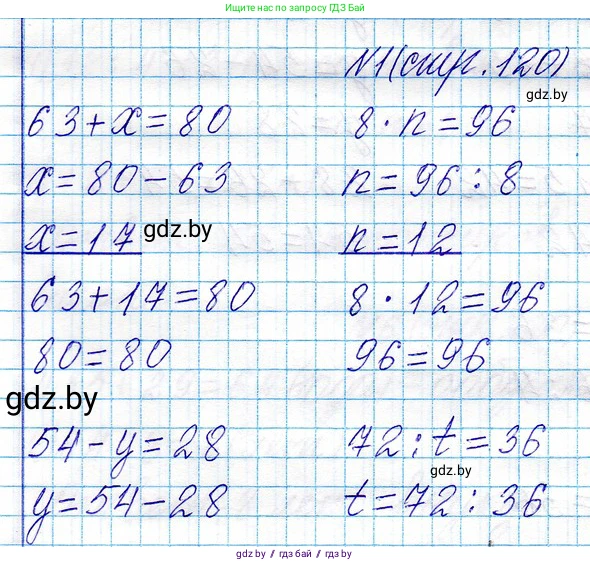 Ищите нас по запросу ГДЗ Бай
N1(стр. 120)
gdz.by
63+x=80 8·n=96
x=80-63 n=96:8
x=17 gdz.by n=12
63+17=80 8·12=96
80=80 96=96
gdz.by
54-y=28 72:t=36
gdz.by
y=54-28 t=72:36
gdz.by / гдз бай / gdz.by